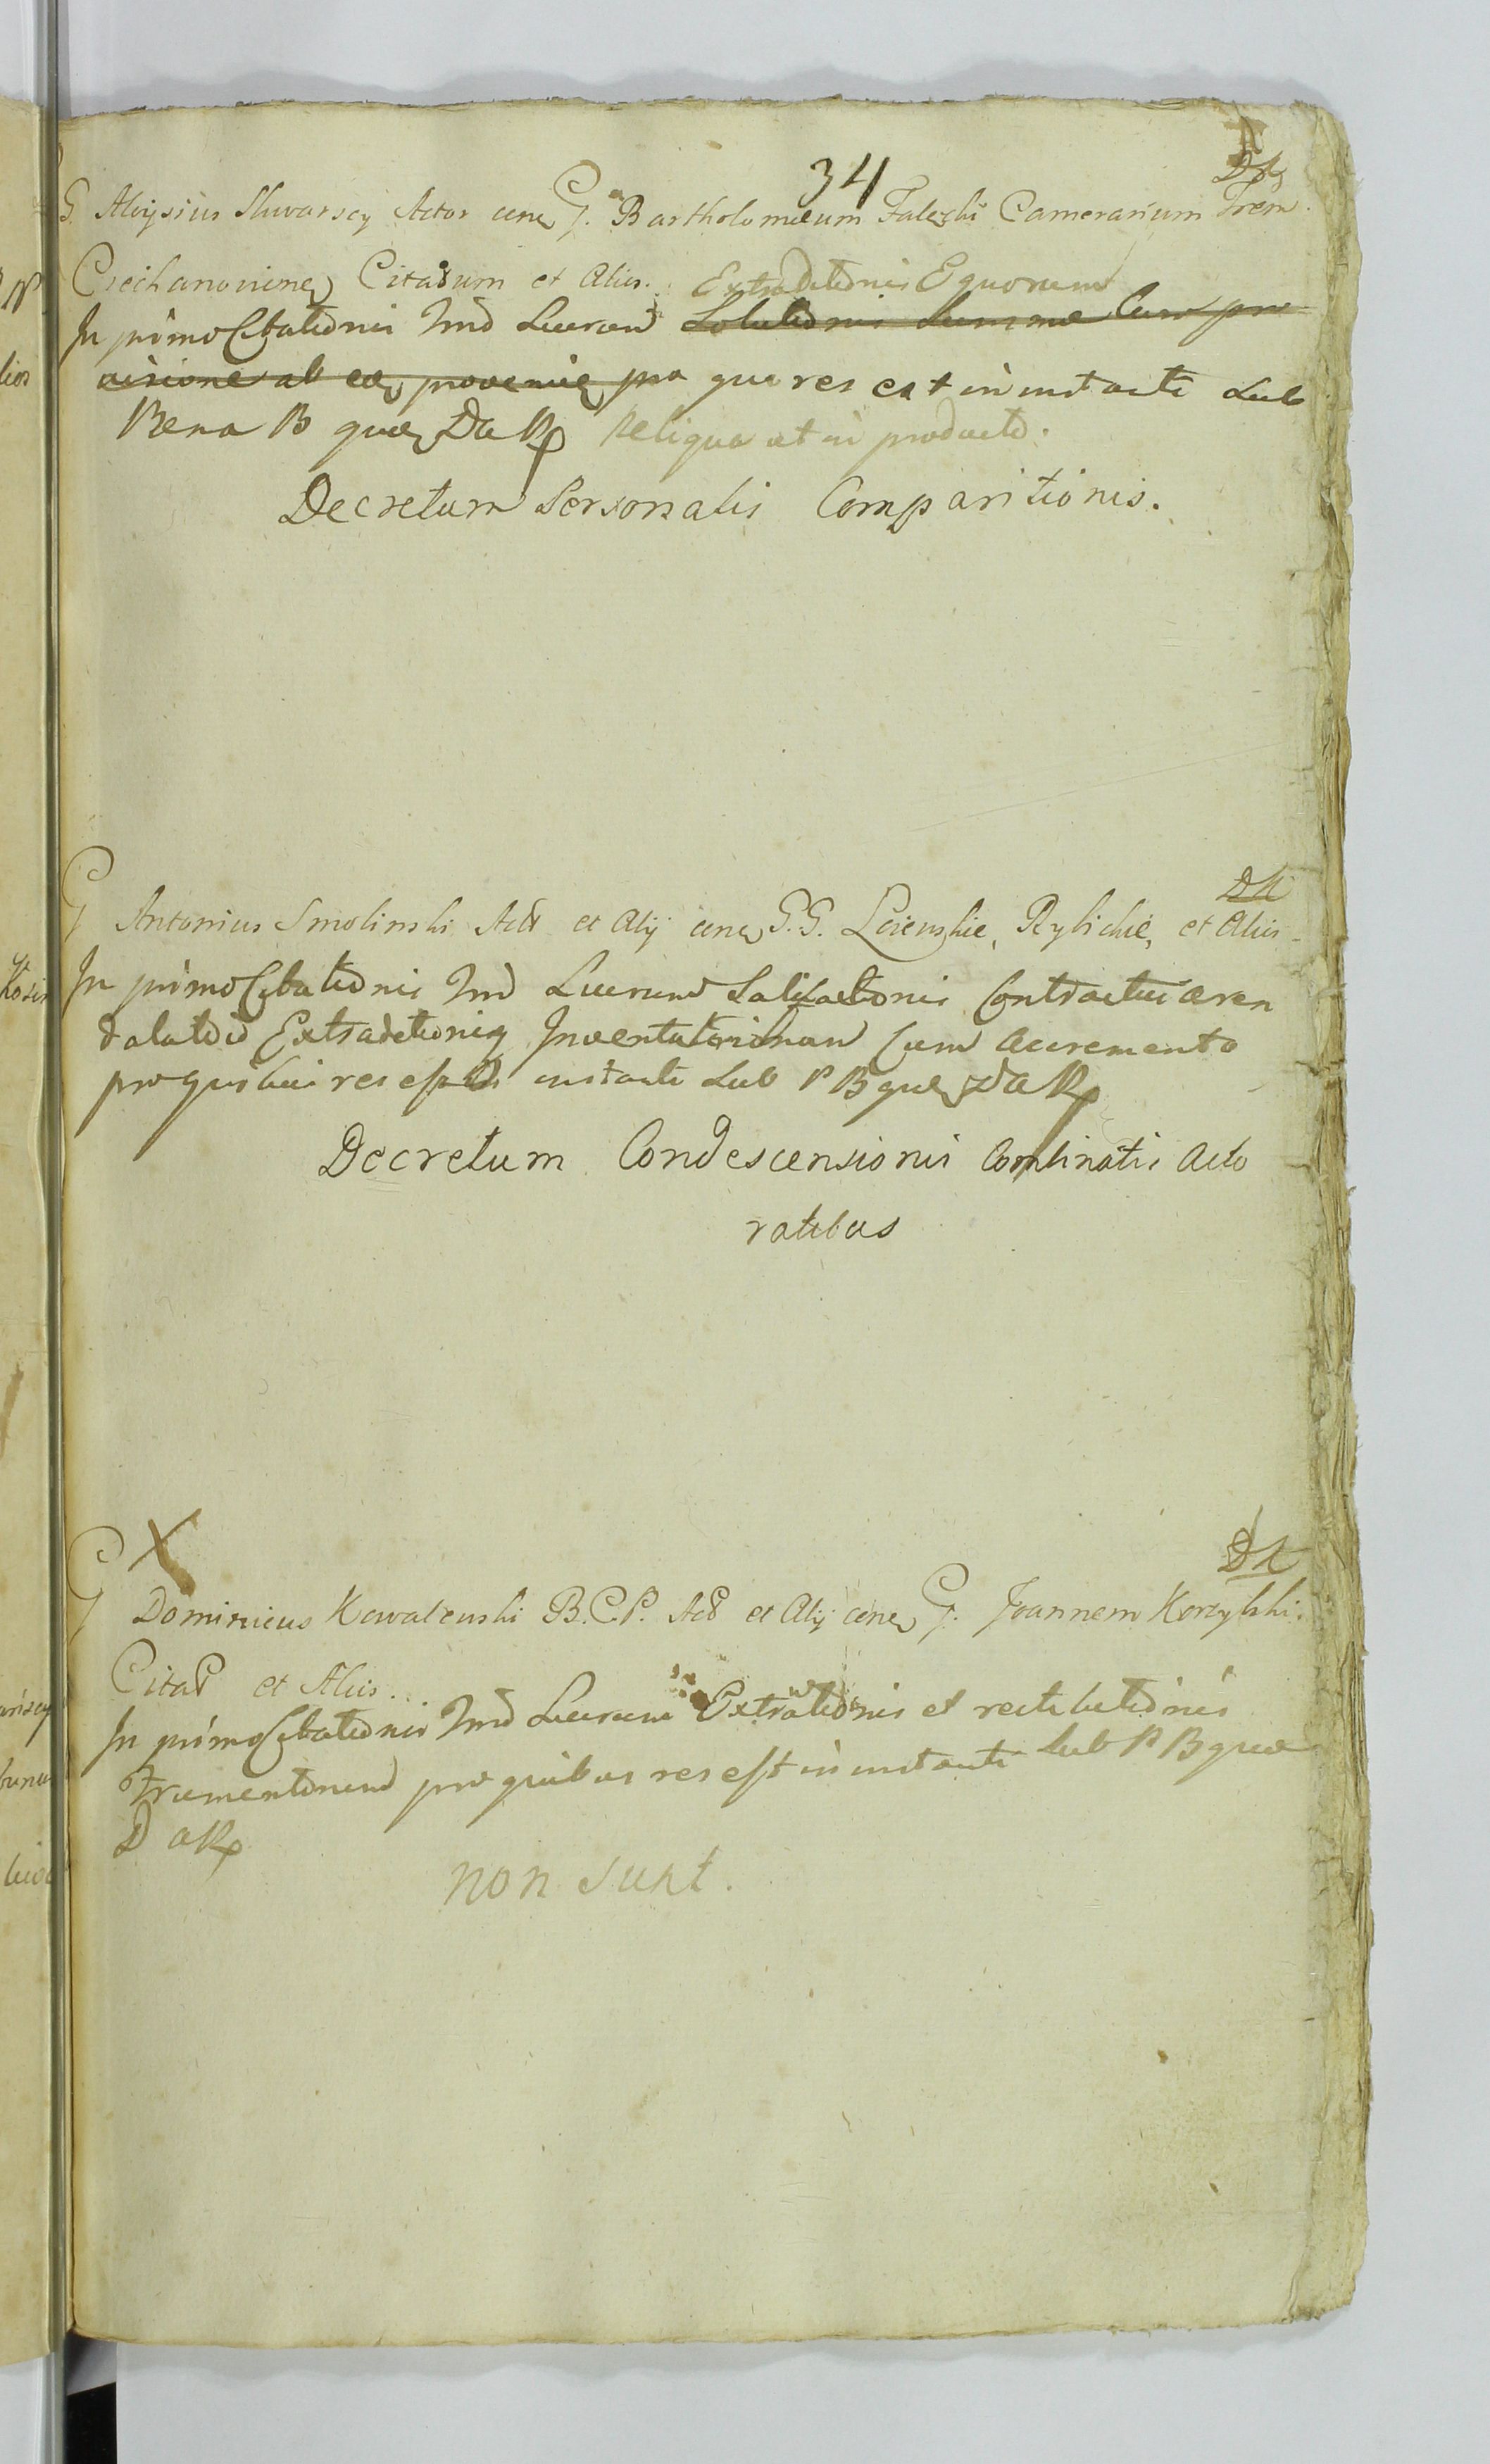 34
Dt
G. Aloysius Skwarscy Actor cone G. Bartholomæum Faleski Camerarium Trem.
Ciechanoviene Citatum et Alios. Extraditionis Equorum
In primo Citationis Imd Lucrand Solutionis Summæ Cum pro
visione ab ea proveniē pro qua res est in instanti Sub
Pena B que Da Rp Reliqua ut in producto.
Decretum Personalis Comparitionis.
Dt
G Antonius Smolinski Act et Alij cone G.G. Rybickie, et Alios
In primo Citationis Imd Lucrand Satisfactionis Contractui aren
datitio Extraditioniq Inventariorum Cum Accremento
pro quibus res est in instanti Sub P B que Da Rp
Decretum Condescensionis Combinatis Acto
ratibus
X
Dt
G Dominicus Kowalewski B.C.P. Act et Alij cone G. Joannem
Citat et Alios...
In primo Citationis Imd Lucrand Extraditionis et restitutionis
frumentorum pro quibus res est in instanti Sub P B que
D a Rp
non sunt.